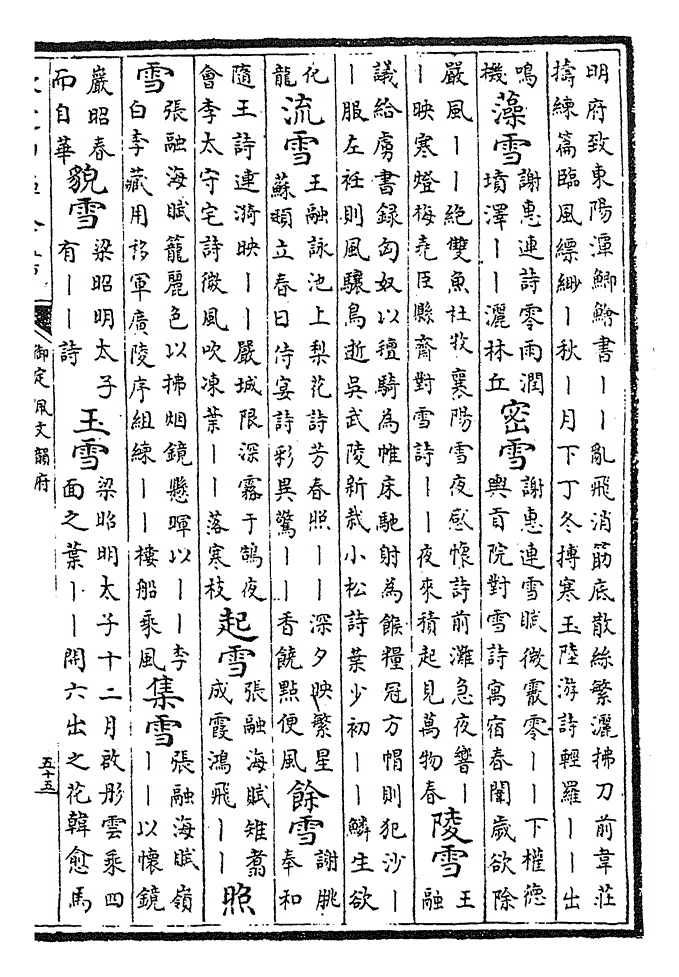 明府致東陽潭鯽鱠書丨丨亂飛消筯底散絲繁灑拂刀前韋莊
擣練篇臨風縹緲丨秋丨月下丁冬搏寒玉陸游詩輕羅丨丨出
鳴
機
藻雪
謝惠連詩零雨潤
墳澤丨丨灑林丘
密雪
謝惠連雪賦微霰零丨丨下權德
輿貢院對雪詩寓宿春闈歲欲除
嚴風丨丨絕雙魚杜牧襄陽雪夜感懷詩前灘急夜響丨
丨映寒燈梅堯臣縣齋對雪詩丨丨夜來積起見萬物春
陵雪
王
融
議給虜書録匈奴以氊騎為帷床馳射為餱糧冠方帽則犯沙丨
丨服左衽則風驤鳥逝吳武陵新栽小松詩葉少初丨丨鱗生欲
化
龍
流雪
王融詠池上梨花詩芳春照丨丨深夕映繁星
蘇頲立春日侍宴詩彩異驚丨丨香饒點便風
餘雪
謝朓
奉和
隨王詩連漪映丨丨嚴城限深霧于鵠夜
會李太守宅詩微風吹凍葉丨丨落寒枝
起雪
張融海賦雉翥
成霞鴻飛丨丨
照
雪
張融海賦籠麗色以拂烟鏡懸暉以丨丨李
白李藏用移軍廣陵序組練丨丨樓船乘風
集雪
張融海賦嶺
丨丨以懷鏡
巖昭春
而自華
貌雪
梁昭明太子
有丨丨詩
玉雪
梁昭明太子十二月啟彤雲乘四
面之葉丨丨開六出之花韓愈馬
御定佩文韻府
五十五